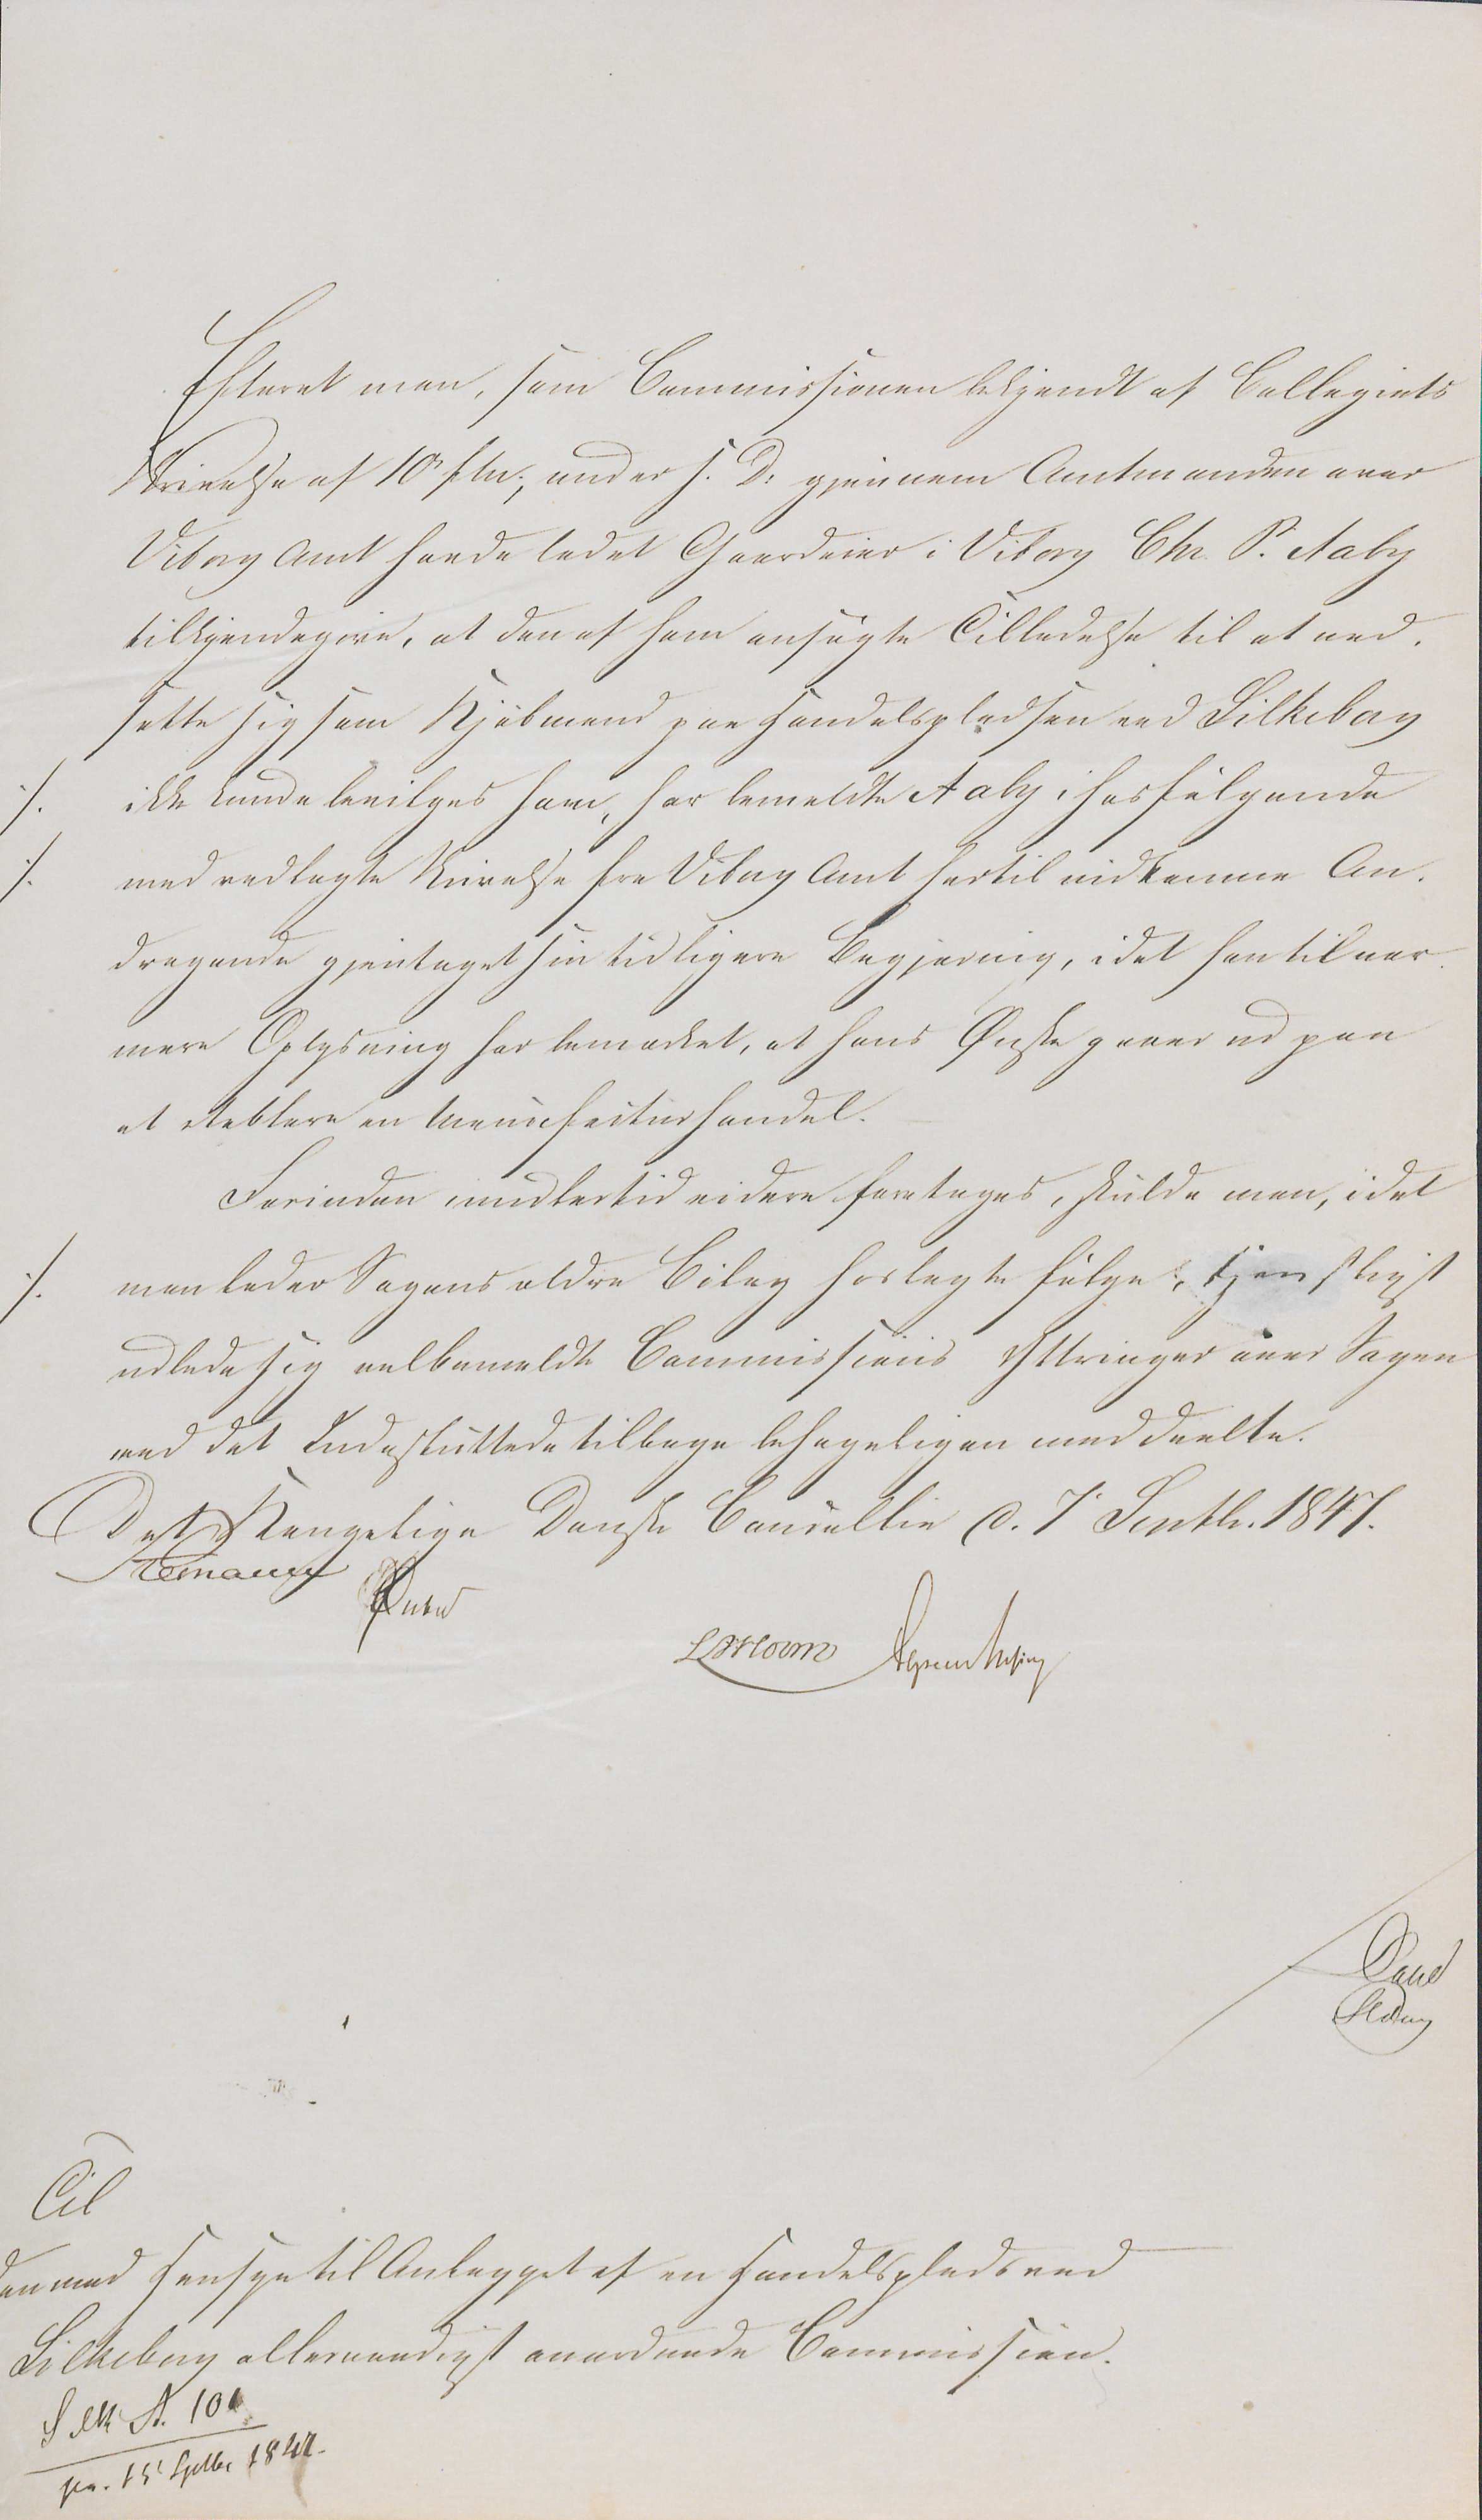 Efterat man, som Commissionen bekjendt af Collegiets
Skrivelse af 10de f. M., under s. D. gjennem Amtmanden over
Viborg Amt havde ladet Gaardeier i Viborg Chr. P. Aaby
tilkjendegive, at den af ham ansøgte Tilladelse til at ned-
sætte sig som Kjøbmand paa Handelspladsen ved Silkeborg
./. ikke kunde bevilges ham, har bemeldte Aaby i hosfølgende
./. med vedlagte Skrivelse fra Viborg Amt hertil indkomne An-
dragende gjentaget sin tidligere Begjæring, idet han til nær-
mere Oplysning har bemærket, at hans Ønske gaaer ud paa
at etablere en Manufacturhandel.
Forinden imidlertid videre foretages, skulde man, idet
./. man lader Sagens ældre Bilag hoslagte følge, tjenstligst
udbede sig velbemeldte Commissions Yttringer over Sagen
med det Indesluttede tilbage behageligen meddeelte.
Det Kongelige Danske Cancellie d. 7 Septbr. 1847.
Stemann
Ørsted
Til
den med Hensyn til Anlægget af en Handelsplads ved
Silkeborg allernaadigst anordnede Commission.
Silk A. 10
pr. 15 Septbr 1847.